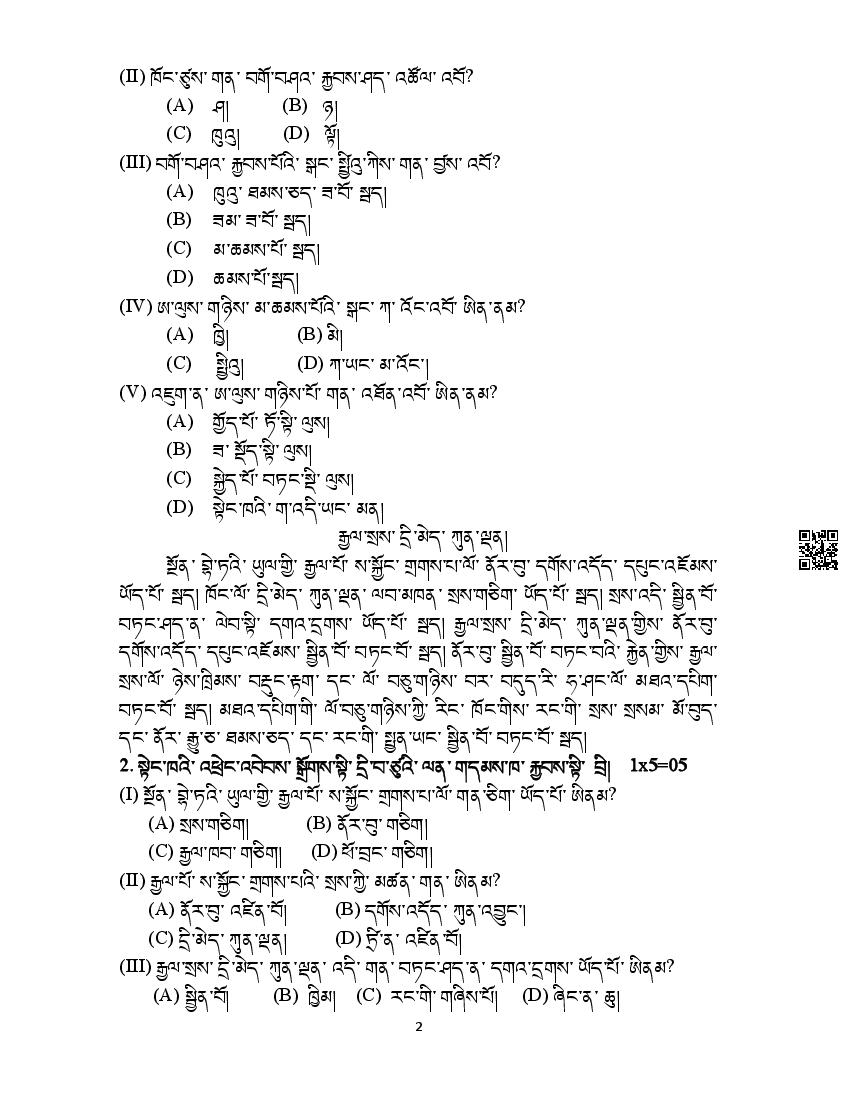 (II) ཁོང་ཙུས་ གན་ བགོ་བཤའ་ རྐྱབས་ཤད་ འཚོལ་ འབོ?
(A) ཤ། (B) ཉ།
(C) ཁུའུ། (D) ལྟོ།
(III) བགོ་བཤའ་ རྐྱབས་པོའི་ སྒང་ སྤྱིའུ་ཀིས་ གན་ བྱས་ འབོ?
(A) ཁུའུ་ ཐམས་ཅད་ ཟ་བོ་ སྦད།
(B) ཟམ་ ཟ་བོ་ སྦད།
(C) མ་ཆམས་པོ་ སྦད།
(D) ཆམས་པོ་སྦད།
(IV) ཨ་ལུས་ གཉིས་ མ་ཆམས་པོའི་ སྒང་ ཀ་ འོང་འབོ་ ཨིན་ནམ?
(A) ཁྱི། (B) མི།
(C) སྤྱིའུ། (D) ཀ་ཡང་ མ་འོང་།
(V) འཇུག་ན་ ཨ་ལུས་ གཉིས་པོ་ གན་ འཐོན་འབོ་ ཨིན་ནམ?
(A) ཀྱོད་པོ་ ཏོ་སྟི་ ལུས།
(B) ཟ་ སྔོད་སྟི་ ལུས།
(C) སྐྱེད་པོ་ བཏང་སྡི་ ལུས།
(D) སྟེང་ཁའི་ ག་འདི་ཡང་ མན།
རྒྱལ་སྲས་ དྲི་མེད་ ཀུན་ལྡན།
སྔོན་ བྷེ་ཏའི་ ཡུལ་གྱི་ རྒྱལ་པོ་ ས་སྐྱོང་ གྲགས་པ་ལོ་ ནོར་བུ་ དགོས་འདོད་ དཔུང་འཇོམས་
ཡོད་པོ་ སྦད། ཁོང་ལོ་ དྲི་མེད་ ཀུན་ལྡན་ ལབ་མཁན་ སྲས་གཅིག་ ཡོད་པོ་ སྦད། སྲས་འདི་ སྦྱིན་བོ་
བཏང་ཤད་ན་ ལེབ་སྟི་ དགའ་དྲགས་ ཡོད་པོ་ སྦད། རྒྱལ་སྲས་ དྲི་མེད་ ཀུན་ལྡན་གྱིས་ ནོར་བུ་
དགོས་འདོད་ དཔུང་འཇོམས་ སྦྱིན་བོ་ བཏང་བོ་ སྦད། ནོར་བུ་ སྦྱིན་བོ་ བཏང་བའི་ རྐྱེན་གྱིས་ རྒྱལ་
སྲས་ལོ་ ཉེས་ཁྲིམས་ བརྡུང་རྟག་ དང་ ལོ་ བཅུ་གཉིས་ བར་ བདུད་རི་ ཧ་ཤང་ལོ་ མཐའ་དཔིག་
བཏང་བོ་ སྦད། མཐའ་དཔིག་གི་ ལོ་བཅུ་གཉིས་ཀྱི་ རིང་ ཁོང་གིས་ རང་གི་ སྲས་ སྲསམ་ མོ་བུད་
དང་ ནོར་ རྒྱུ་ཅ་ ཐམས་ཅད་ དང་ རང་གི་ སྤྱན་ཡང་ སྦྱིན་བོ་ བཏང་བོ་ སྦད།
2. སྟེང་ཁའི་ འཕྲེང་འབེབས་ སྒྲོགས་སྟི་ དྲི་བ་ཙུའི་ ལན་ གདམས་ཁ་ རྐྱབས་སྟི་ བྲི། 1x5=05
(I) སྔོན་ བྷེ་ཏའི་ ཡུལ་གྱི་ རྒྱལ་པོ་ ས་སྐྱོང་ གྲགས་པ་ལོ་ གན་ཅིག་ ཡོད་པོ་ ཨིནམ?
(A) སྲས་གཅིག། (B) ནོར་བུ་ གཅིག།
(C) རྒྱལ་ཁབ་ གཅིག། (D) ཕོ་བྲང་ གཅིག།
(II) རྒྱལ་པོ་ ས་སྐྱོང་ གྲགས་པའི་ སྲས་ཀྱི་ མཚན་ གན་ ཨིནམ?
(A) ནོར་བུ་ འཛིན་བོ། (B) དགོས་འདོད་ ཀུན་འབྱུང་།
(C) དྲི་མེད་ ཀུན་ལྡན། (D) ཏྲི་ན་ འཛིན་བོ།
(III) རྒྱལ་སྲས་ དྲི་མེད་ ཀུན་ལྡན་ འདི་ གན་ བཏང་ཤད་ན་ དགའ་དྲགས་ ཡོད་པོ་ ཨིནམ?
(A) སྦྱིན་བོ། (B) ཁྱིམ། (C) རང་གི་ གཞིས་པོ། (D) ཞིང་ན་ ཆུ།
2